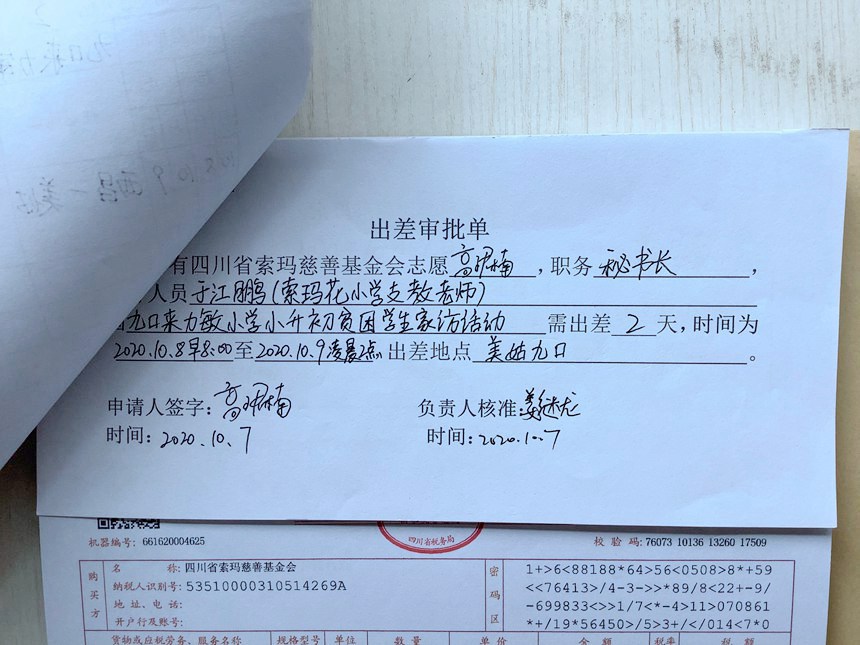 出差审批单
有四川省索玛慈善基金会志愿高珺楠,职务秘书长,
人员于江鹏(索玛花小学支教老师)
九口来力敏小学小升初贫困学生家访活动 需出差2天,时间为
2020.10.8早8:00至2020.10.9凌晨2点出差地点美姑九口。
申请人签字:高珺楠 负责人核准:
时间:2020.10.7 时间:2020.10.7
四川省税务局
机器编号: 661620004625 校验码: 76073 10136 13260 17509
购买方
名称: 四川省索玛慈善基金会
纳税人识别号: 53510000310514269A
地址、电话:
开户行及账号:
密码区
1+>6<88188*64>56<0508>8*+59
<<76413>/4-3->>*89/8<22+-9/
-699833<>>1/7<*-4>11>070861
*+/19*56450>/5>3+/</014<7*0
货物或应税劳务、服务名称 规格型号 单位 数量 单价 金额 税率 税额